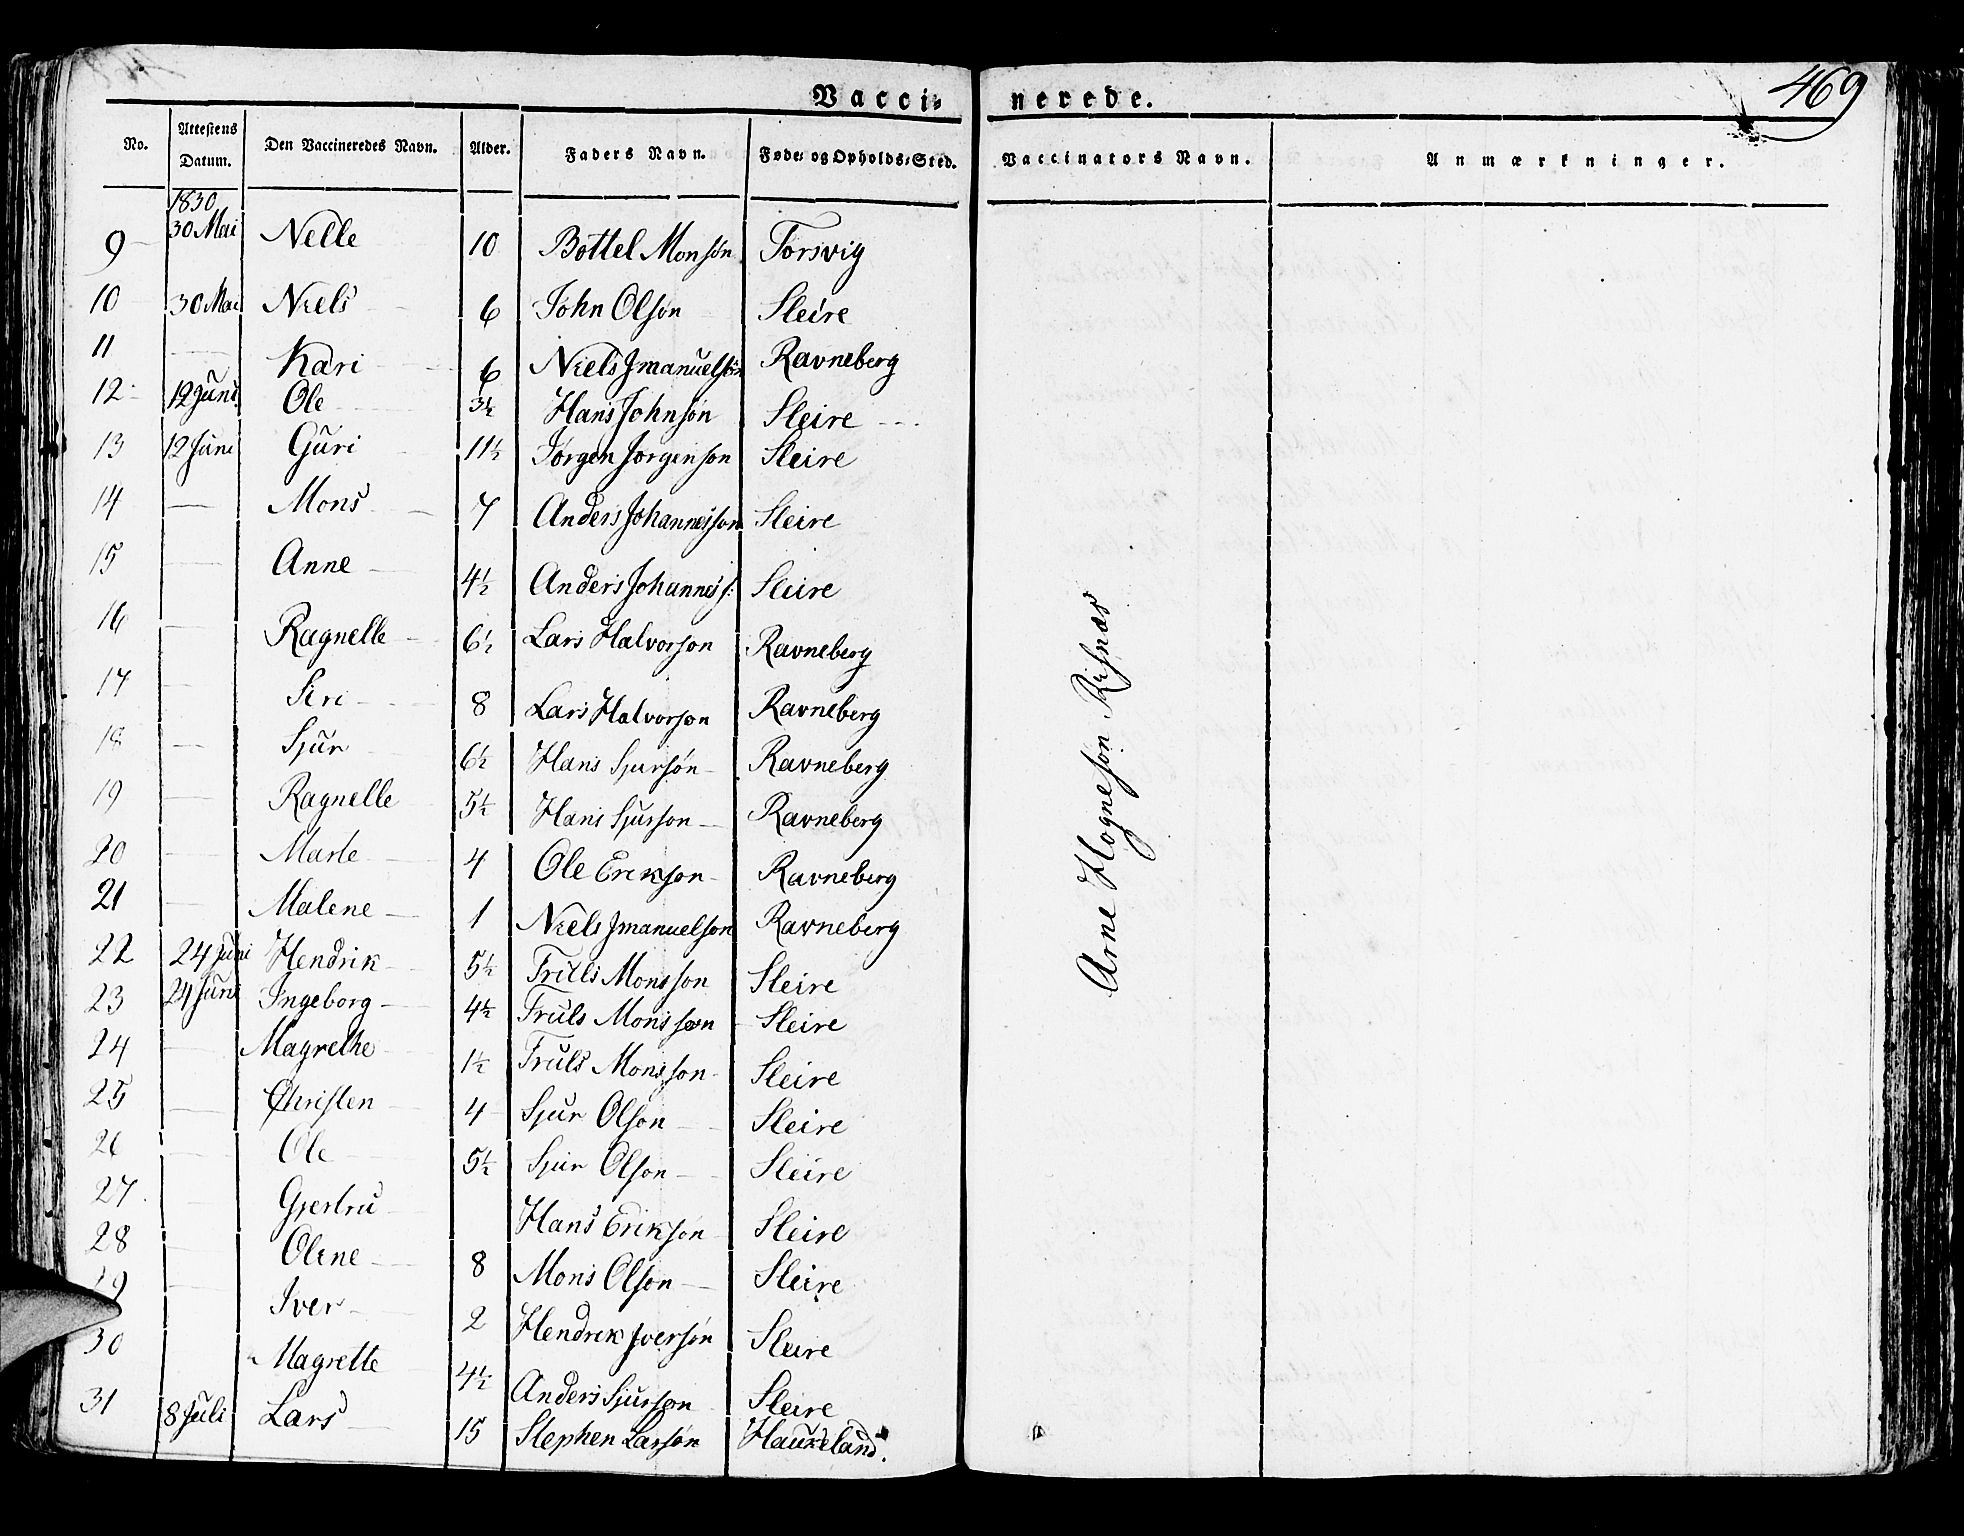 469
Vacci- nerede.
No. Attestens Datum. Den Vaccineredes Navn. Alder. Faders Navn. Føde- og Opholds-Sted. Vaccinators Navn. Anmærkninger.
1830
9 30 Mai Nelle 10 Bottel Monsøn Torsvig
10 30 Mai Niels 6 John Olsøn Sleire
11 — Kari 6 Niels Jmanuelsøn Ravneberg
12 12 Juni Ole 3½ Hans Johnsøn Sleire
13 12 Juni Guri 11½ Jørgen Jørgenson Sleire
14 — Mons 7 Anders Johannesson Sleire
15 — Anne 4½ Anders Johannes s: Sleire
16 — Ragnelle 6½ Lars Halvorson Ravneberg
17 — Siri 8 Lars Halvorson Ravneberg
18 — Sjur 6½ Hans Sjursøn Ravneberg
19 — Ragnelle 5½ Hans Sjurson Ravneberg
20 — Marte 4 Ole Erikson Ravneberg
21 — Malene 1 Niels Jmanuelson Ravneberg
22 24 Juni Hendrik 5½ Truls Monsson Sleire
23 24 Juni Ingeborg 4½ Truls Monsson Sleire
24 — Magrethe 1½ Truls Monsson Sleire
25 — Christen 4 Sjur Olson Sleire
26 — Ole 5½ Sjur Olson Sleire
27 — Gjertru Hans Erikson Sleire
28 — Oline 8 Mons Olson Sleire
29 — Iver 2 Hendrik Iversøn Sleire
30 Magrette 4½ Anders Sjurson Sleire
31 8 Juli Lars 15 Stephen Larsøn Haukeland.
Arne Hogneson Risnæs